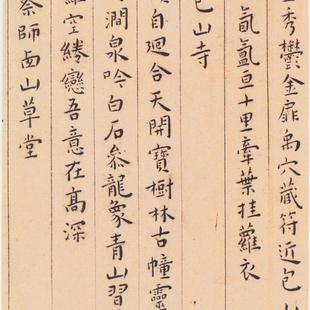 秀鬱金扉禹穴藏符近包
氤氳亘十里牽葉挂蘿衣
包山寺
自迴合天開寶樹林古幢靈
澗泉吟白石叅龍象青山習
空綣戀吾意在高深
師西山草堂